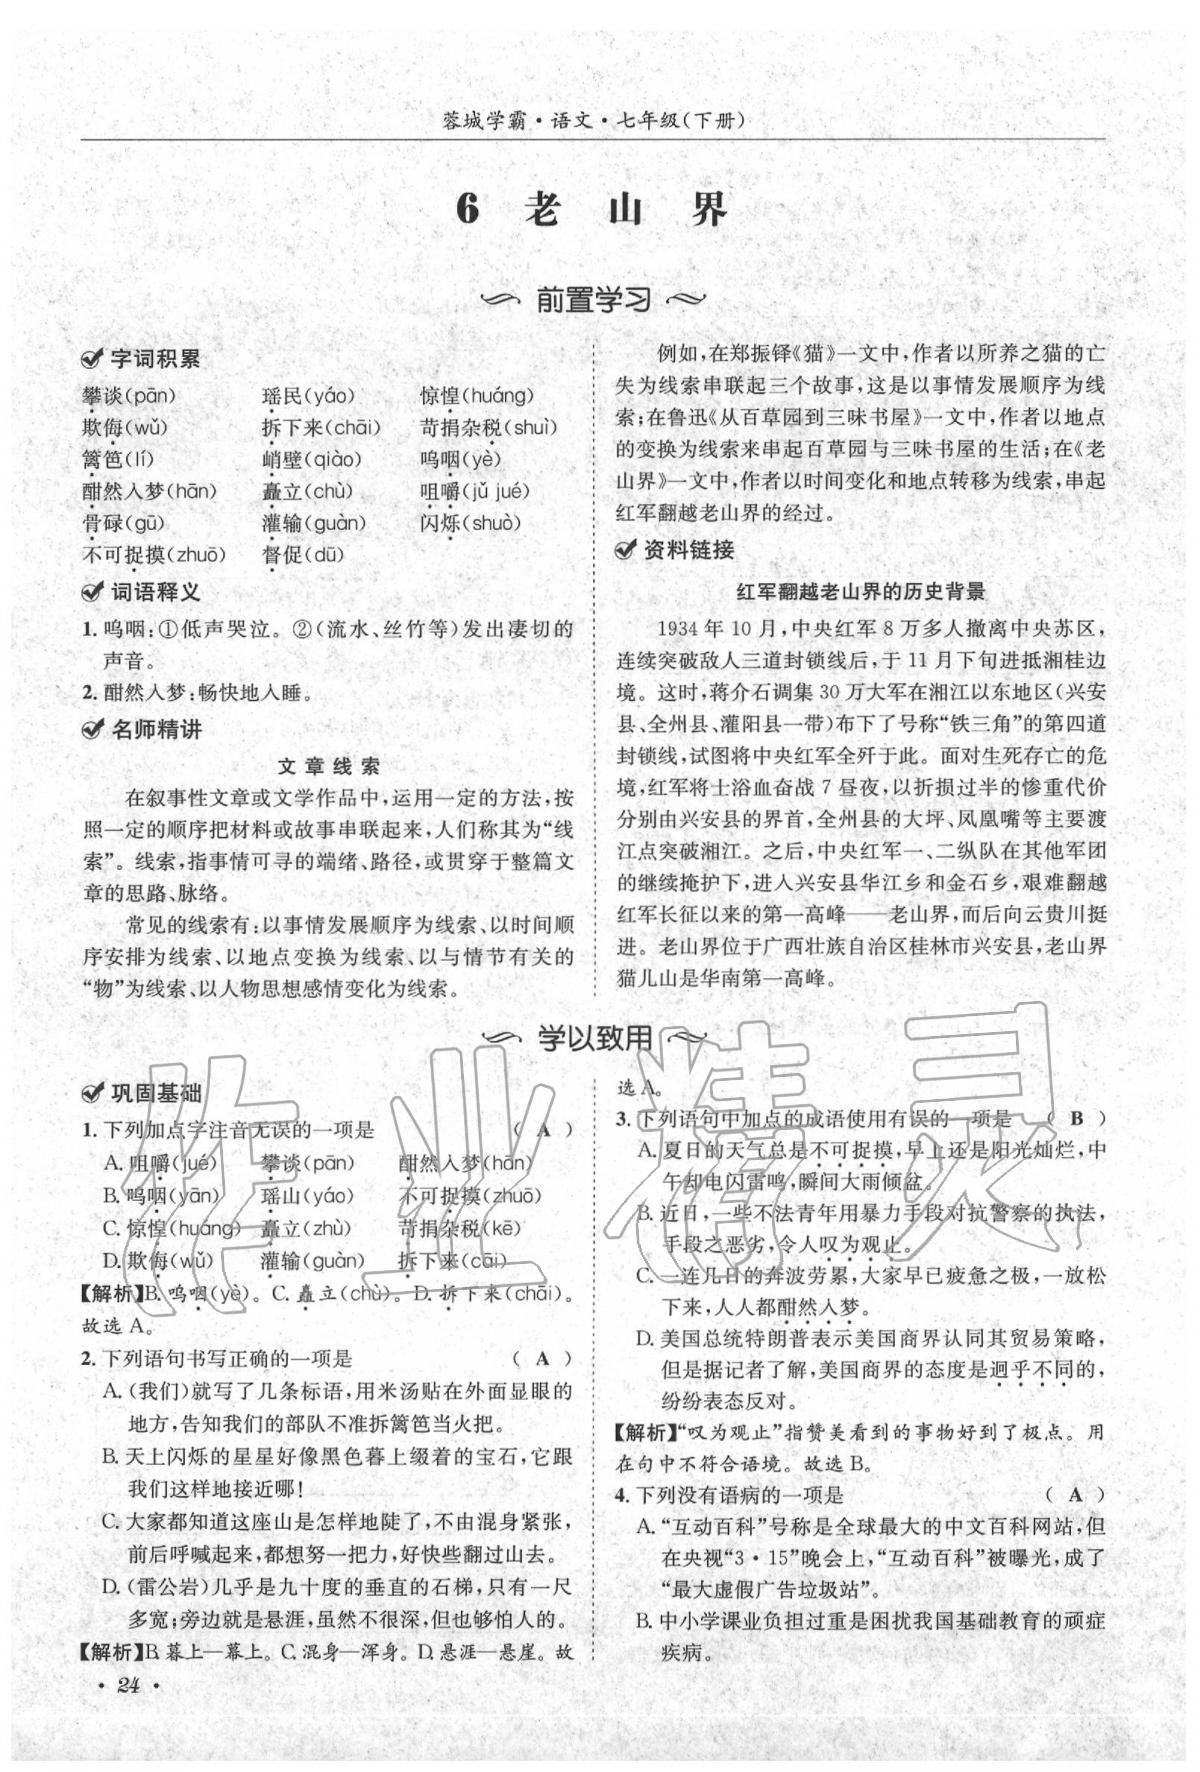 蓉城学霸·语文·七年级(下册)
6 老山界
前置学习
字词积累
攀谈(pān) 瑶民(yáo) 惊惶(huáng)
欺侮(wǔ) 拆下来(chāi) 苛捐杂税(shuì)
篱笆(lí) 峭壁(qiào) 呜咽(yè)
酣然入梦(hān) 矗立(chù) 咀嚼(jǔ jué)
骨碌(gū) 灌输(guàn) 闪烁(shuò)
不可捉摸(zhuō) 督促(dū)
词语释义
1. 呜咽:①低声哭泣。②(流水、丝竹等)发出凄切的
声音。
2. 酣然入梦:畅快地入睡。
名师精讲
文章线索
在叙事性文章或文学作品中,运用一定的方法,按
照一定的顺序把材料或故事串联起来,人们称其为“线
索”。线索,指事情可寻的端绪、路径,或贯穿于整篇文
章的思路、脉络。
常见的线索有:以事情发展顺序为线索、以时间顺
序安排为线索、以地点变换为线索、以与情节有关的
“物”为线索、以人物思想感情变化为线索。
例如,在郑振铎《猫》一文中,作者以所养之猫的亡
失为线索串联起三个故事,这是以事情发展顺序为线
索;在鲁迅《从百草园到三味书屋》一文中,作者以地点
的变换为线索来串起百草园与三味书屋的生活;在《老
山界》一文中,作者以时间变化和地点转移为线索,串起
红军翻越老山界的经过。
资料链接
红军翻越老山界的历史背景
1934 年 10 月,中央红军 8 万多人撤离中央苏区,
连续突破敌人三道封锁线后,于 11 月下旬进抵湘桂边
境。这时,蒋介石调集 30 万大军在湘江以东地区(兴安
县、全州县、灌阳县一带)布下了号称“铁三角”的第四道
封锁线,试图将中央红军全歼于此。面对生死存亡的危
境,红军将士浴血奋战 7 昼夜,以折损过半的惨重代价
分别由兴安县的界首,全州县的大坪、凤凰嘴等主要渡
江点突破湘江。之后,中央红军一、二纵队在其他军团
的继续掩护下,进入兴安县华江乡和金石乡,艰难翻越
红军长征以来的第一高峰——老山界,而后向云贵川挺
进。老山界位于广西壮族自治区桂林市兴安县,老山界
猫儿山是华南第一高峰。
学以致用
巩固基础
1. 下列加点字注音无误的一项是 ( A )
A. 咀嚼(jué) 攀谈(pān) 酣然入梦(hān)
B. 呜咽(yān) 瑶山(yáo) 不可捉摸(zhuō)
C. 惊惶(huáng) 矗立(zhù) 苛捐杂税(kē)
D. 欺侮(wǔ) 灌输(guàn) 拆下来(cāi)
【解析】B. 呜咽(yè)。C. 矗立(chù)。D. 拆下来(chāi)。
故选 A。
2. 下列语句书写正确的一项是 ( A )
A. (我们)就写了几条标语,用米汤贴在外面显眼的
地方,告知我们的部队不准拆篱笆当火把。
B. 天上闪烁的星星好像黑色暮上缀着的宝石,它跟
我们这样地接近哪!
C. 大家都知道这座山是怎样地陡了,不由混身紧张,
前后呼喊起来,都想努一把力,好快些翻过山去。
D. (雷公岩)几乎是九十度的垂直的石梯,只有一尺
多宽;旁边就是悬涯,虽然不很深,但也够怕人的。
【解析】B. 暮上—幕上。C. 混身—浑身。D. 悬涯—悬崖。故
选 A。
3. 下列语句中加点的成语使用有误的一项是 ( B )
A. 夏日的天气总是不可捉摸,早上还是阳光灿烂,中
午却电闪雷鸣,瞬间大雨倾盆。
B. 近日,一些不法青年用暴力手段对抗警察的执法,
手段之恶劣,令人叹为观止。
C. 一连几日的奔波劳累,大家早已疲惫之极,一放松
下来,人人都酣然入梦。
D. 美国总统特朗普表示美国商界认同其贸易策略,
但是据记者了解,美国商界的态度是迥乎不同的,
纷纷表态反对。
【解析】“叹为观止”指赞美看到的事物好到了极点。用
在句中不符合语境。故选 B。
4. 下列没有语病的一项是 ( A )
A. “互动百科”号称是全球最大的中文百科网站,但
在央视“3·15”晚会上,“互动百科”被曝光,成了
“最大虚假广告垃圾站”。
B. 中小学课业负担过重是困扰我国基础教育的顽症
疾病。
·24·
作业精灵